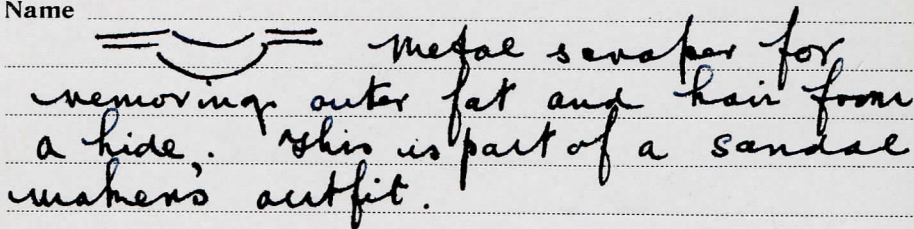 Name
Metal scraper for
removing outer fat and hair from
a hide. This is part of a sandal
maker's outfit.